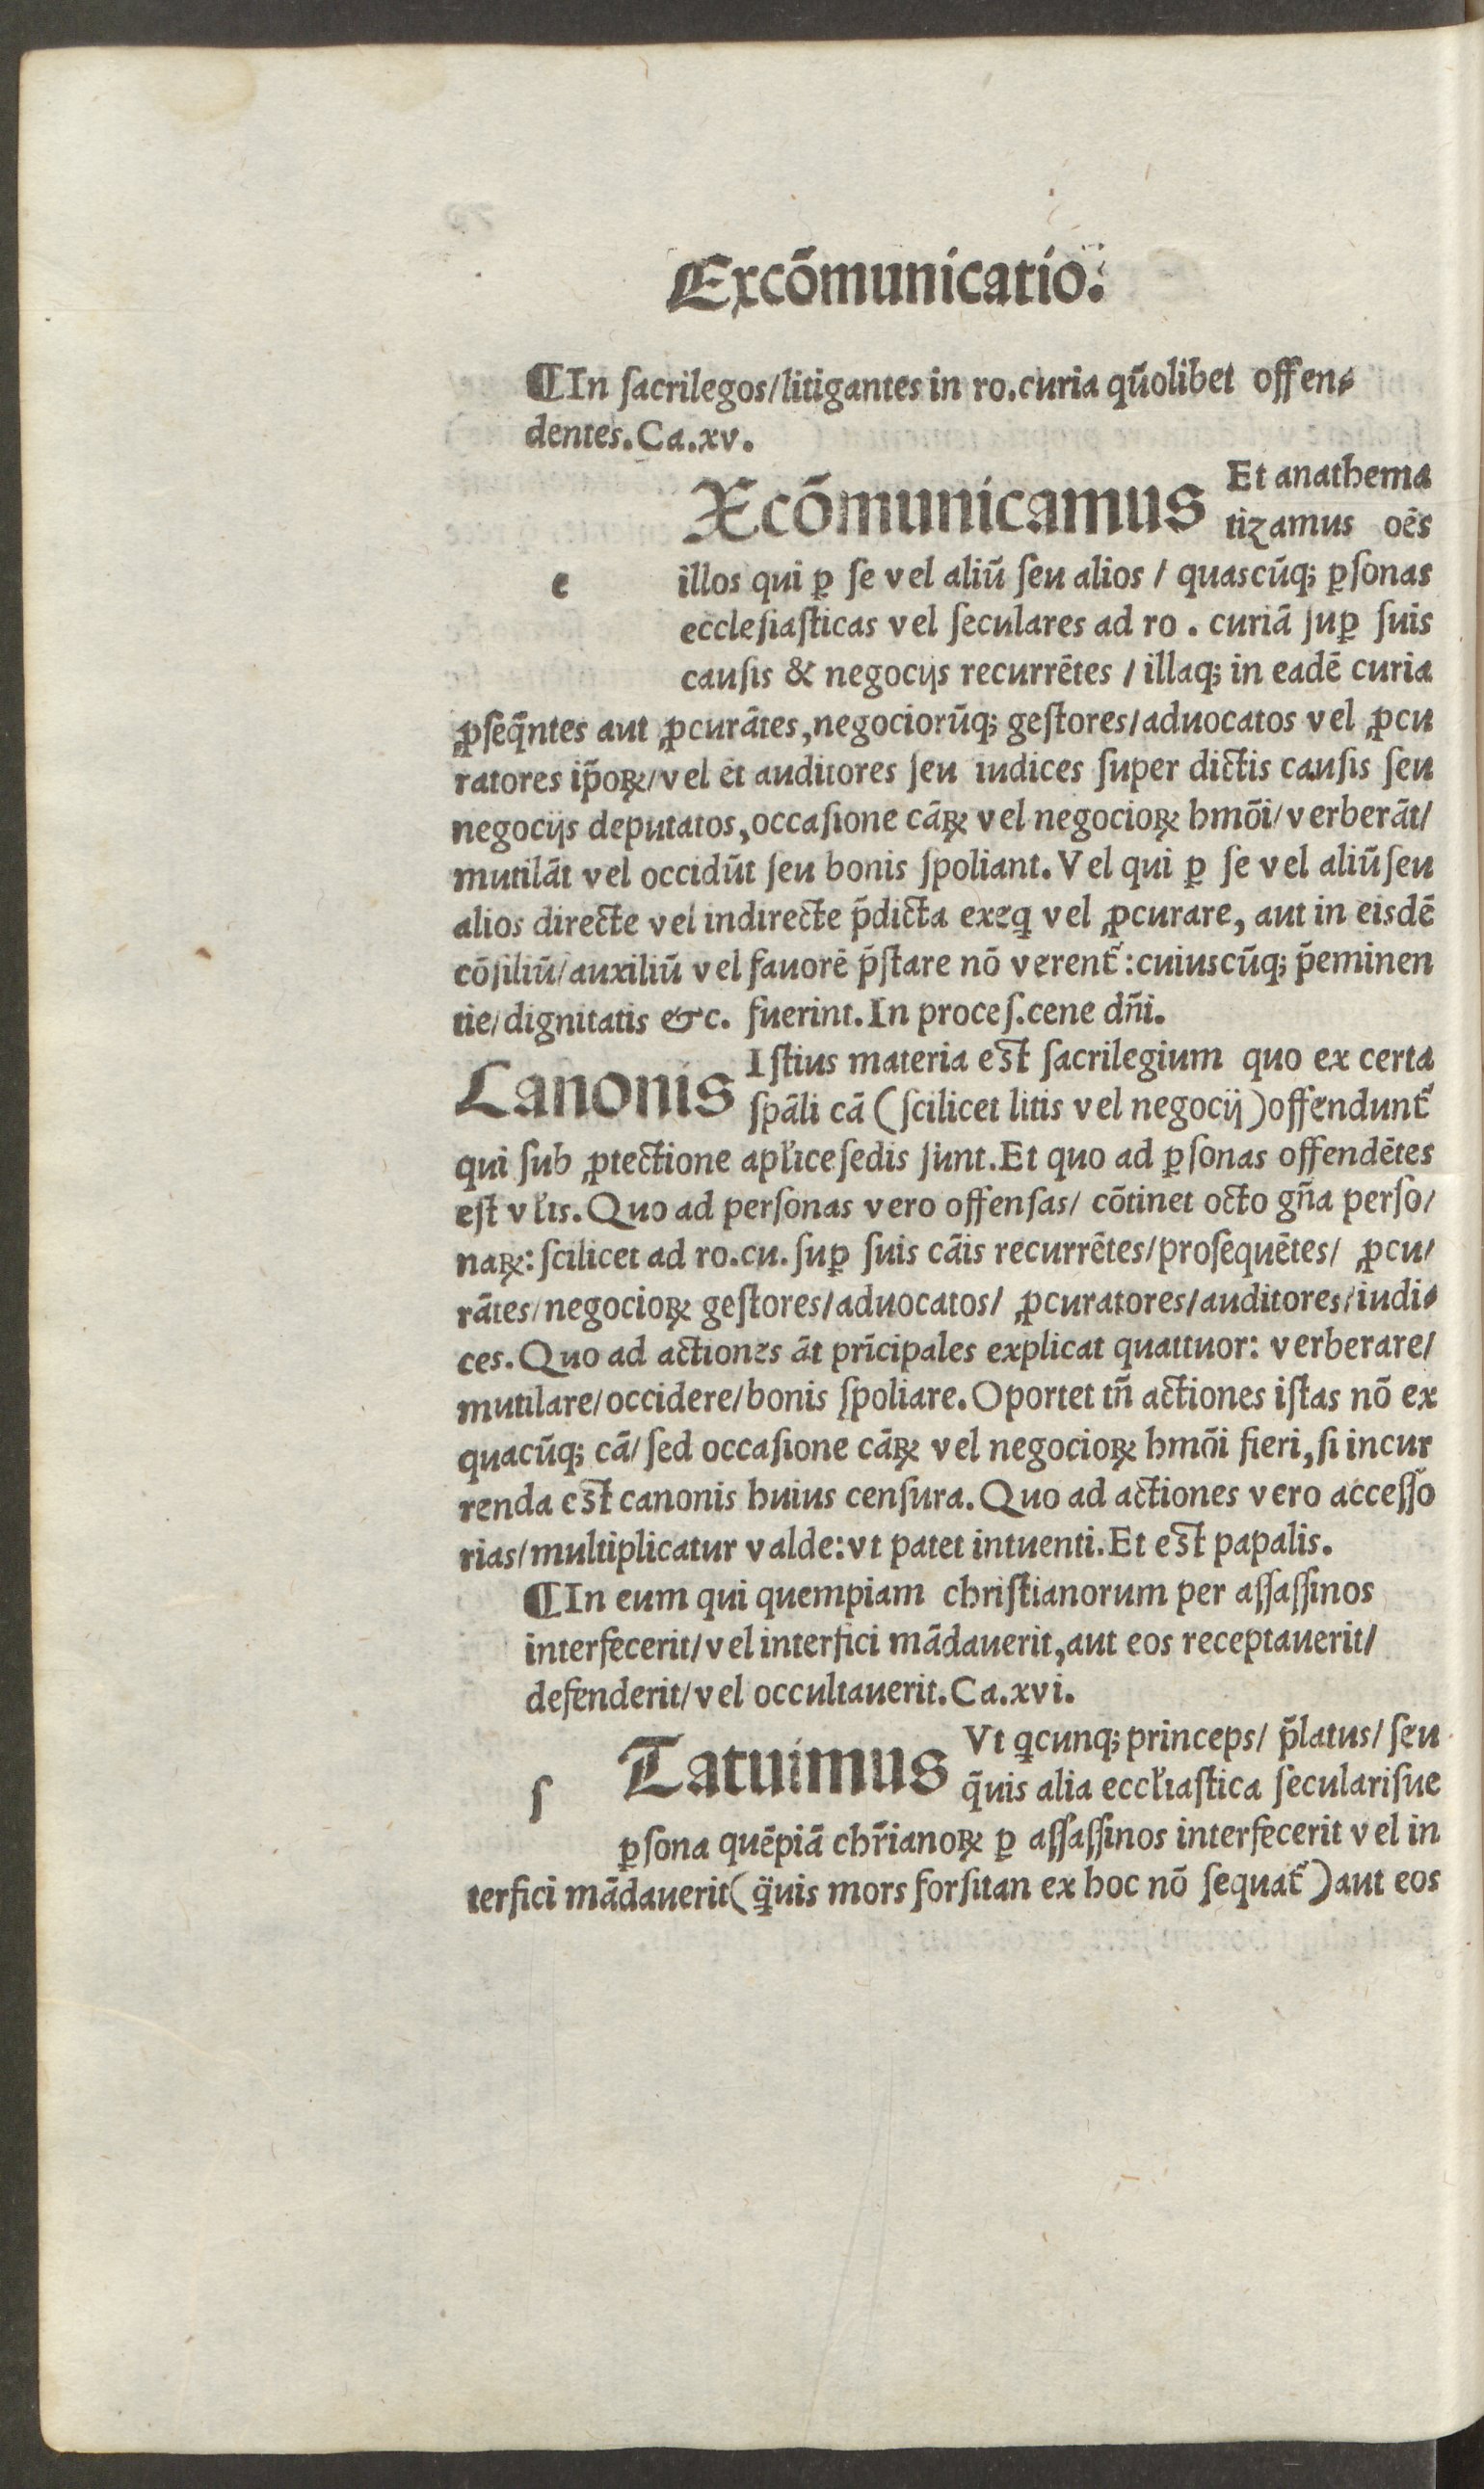 Excōmunicatio.
¶In ſacrilegos/litigantes in ro.curia qũolibet offen⸗
dentes.Ca.xv.
Xcōmunicamus Et anathema
tizamus oēs
e illos qui ꝑ ſe vel aliū ſeu alios / quascūqꝫ ꝑſonas
eccleſiaſticas vel ſeculares ad ro . curiā ſuꝑ ſuis
cauſis & negocijs recurrētes / illaqꝫ in eadē curia
ꝓſeq̄ntes aut ꝓcurātes,negociorūqꝫ geſtores/aduocatos vel ꝓcu
ratores ip̄oꝝ/vel ēt auditores ſeu iudices ſuper dictis cauſis ſeu
negocijs deputatos,occaſione cāꝝ vel negocioꝝ hmōi/verberāt/
mutilāt vel occidūt ſeu bonis ſpoliant.Vel qui ꝑ ſe vel aliū ſeu
alios directe vel indirecte p̄dicta exeꝗ vel ꝓcurare, aut in eisdē
cōſiliū/auxiliū vel fauorē p̄ſtare nō verent᷑:cuiuscūqꝫ p̄eminen
tie/dignitatis &c. fuerint.In proceſ.cene dn̄i.
Canonis Iſtius materia eſt ſacrilegium quo ex certa
ſpāli cā (ſcilicet litis vel negocij)offendunt᷑
qui ſub ꝓtectione apl̄ice ſedis ſunt.Et quo ad ꝑſonas offendētes
eſt vl̄is.Quo ad perſonas vero offenſas/ cōtinet octo gn̄a perſo/
naꝝ:ſcilicet ad ro.cu.ſuꝑ ſuis cāis recurrētes/proſequētes/ ꝓcu/
rātes/negocioꝝ geſtores/aduocatos/ ꝓcuratores/auditores/iudi⸗
ces.Quo ad actiones āt prīcipales explicat quattuor: verberare/
mutilare/occidere/bonis ſpoliare.Oportet tn̄ actiones iſtas nō ex
quacūqꝫ cā/ſed occaſione cāꝝ vel negocioꝝ hmōi fieri,ſi incur
renda eſt canonis huius cenſura.Quo ad actiones vero acceſſo
rias/multiplicatur valde:vt patet intuenti.Et eſt papalis.
¶In eum qui quempiam chriſtianorum per aſſaſſinos
interfecerit/vel interfici mādauerit,aut eos receptauerit/
defenderit/vel occultauerit.Ca.xvi.
ſ Tatuimus Vt ꝗcunqꝫ princeps/ p̄latus/ ſeu
q̄uis alia eccl̄iaſtica ſeculariſue
ꝑſona quēpiā chr̄ianoꝝ ꝑ aſſaſſinos interfecerit vel in
terfici mādauerit(q̄uis mors forſitan ex hoc nō ſequat᷑)aut eos